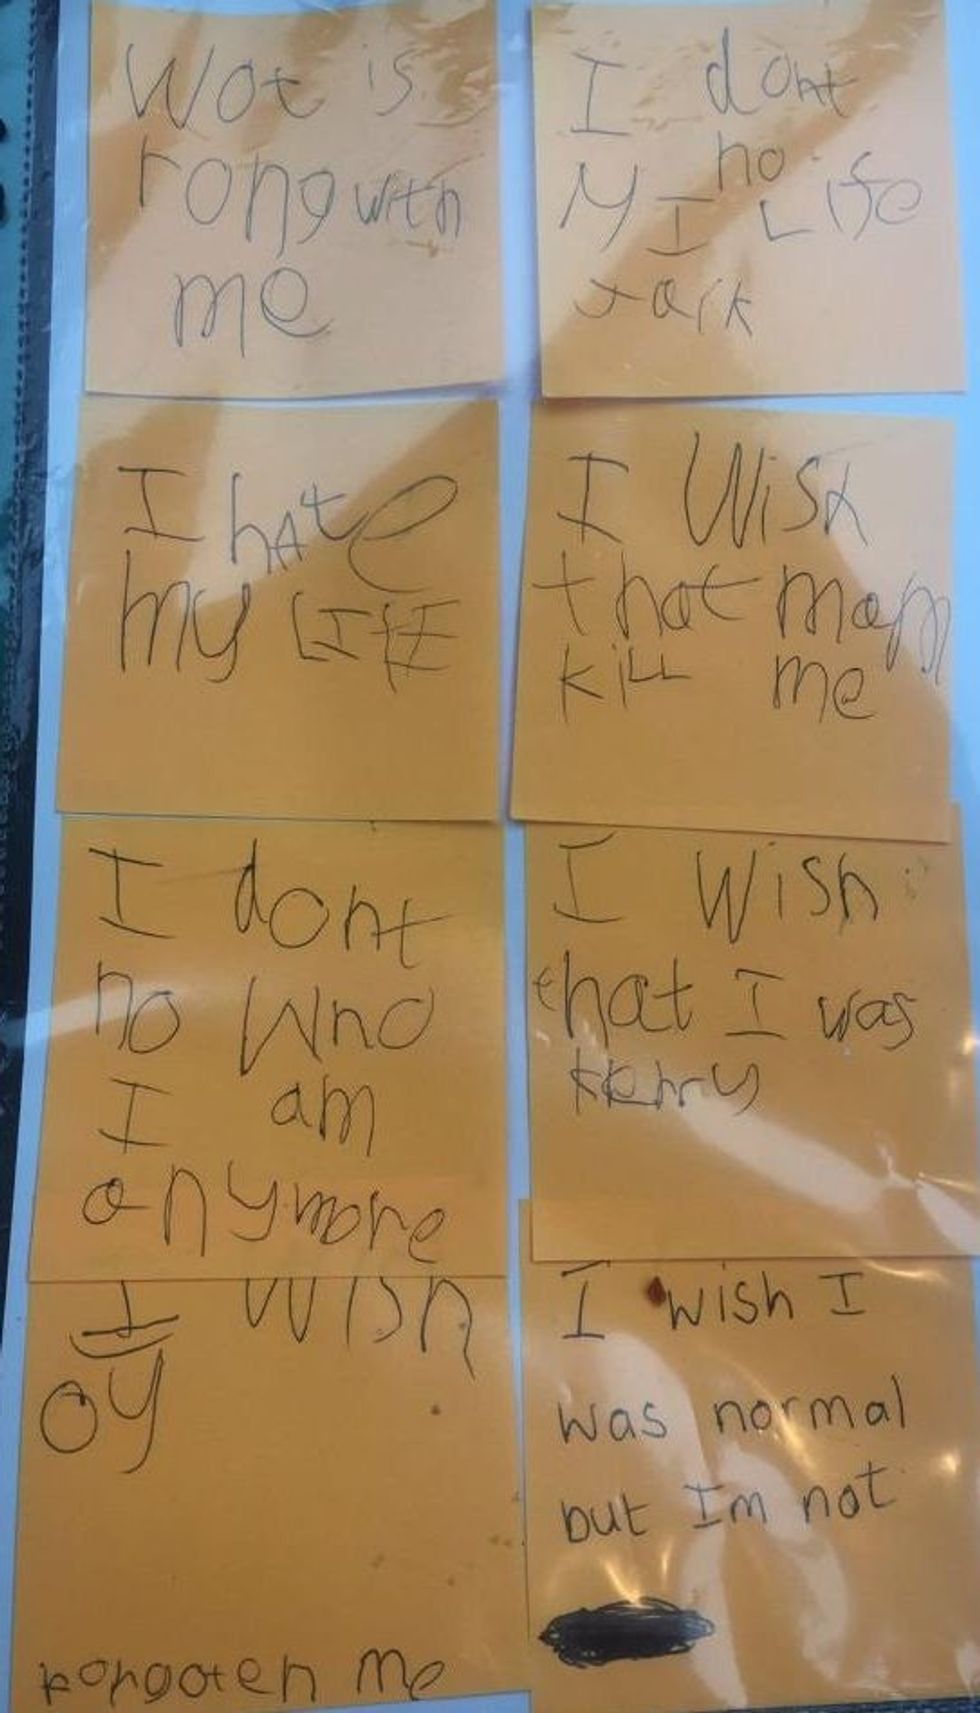 Wot is
rong with
me
I dont
no
My I Life
I hate
my LIFE
I Wish
that mam
kill me
I dont
no who
I am
anymore
I Wish
that I was
kerry
I wish
oy
me
I wish I
was normal
but Im not